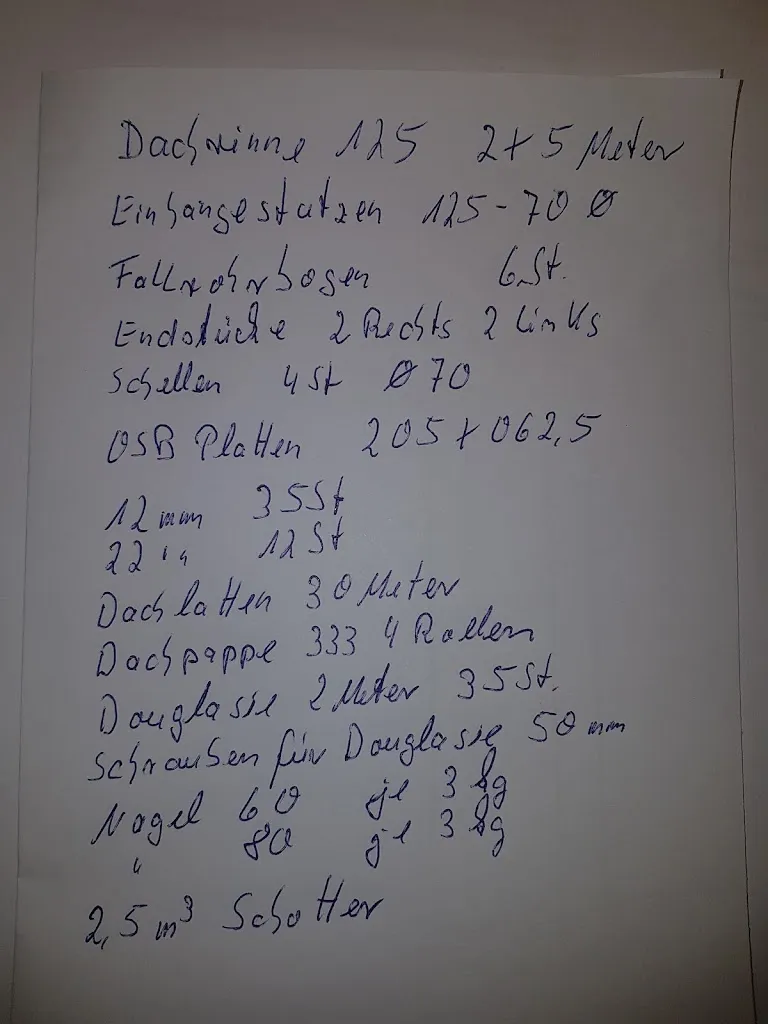 Dachrinne 125 2x5 Meter
Einhangestutzen 125-70 Ø
Fallrohrbogen 6 St.
Endstücke 2 Rechts 2 Links
Schellen 4 St Ø 70
OSB Platten 205x062,5
12 mm 35 St
22 " 12 St
Dachlatten 30 Meter
Dachpappe 333 4 Rollen
Douglasie 2 Meter 35 St.
Schrauben für Douglasie 50 mm
Nagel 60 je 3 kg
" 80 je 3 kg
2,5 m³ Schotter